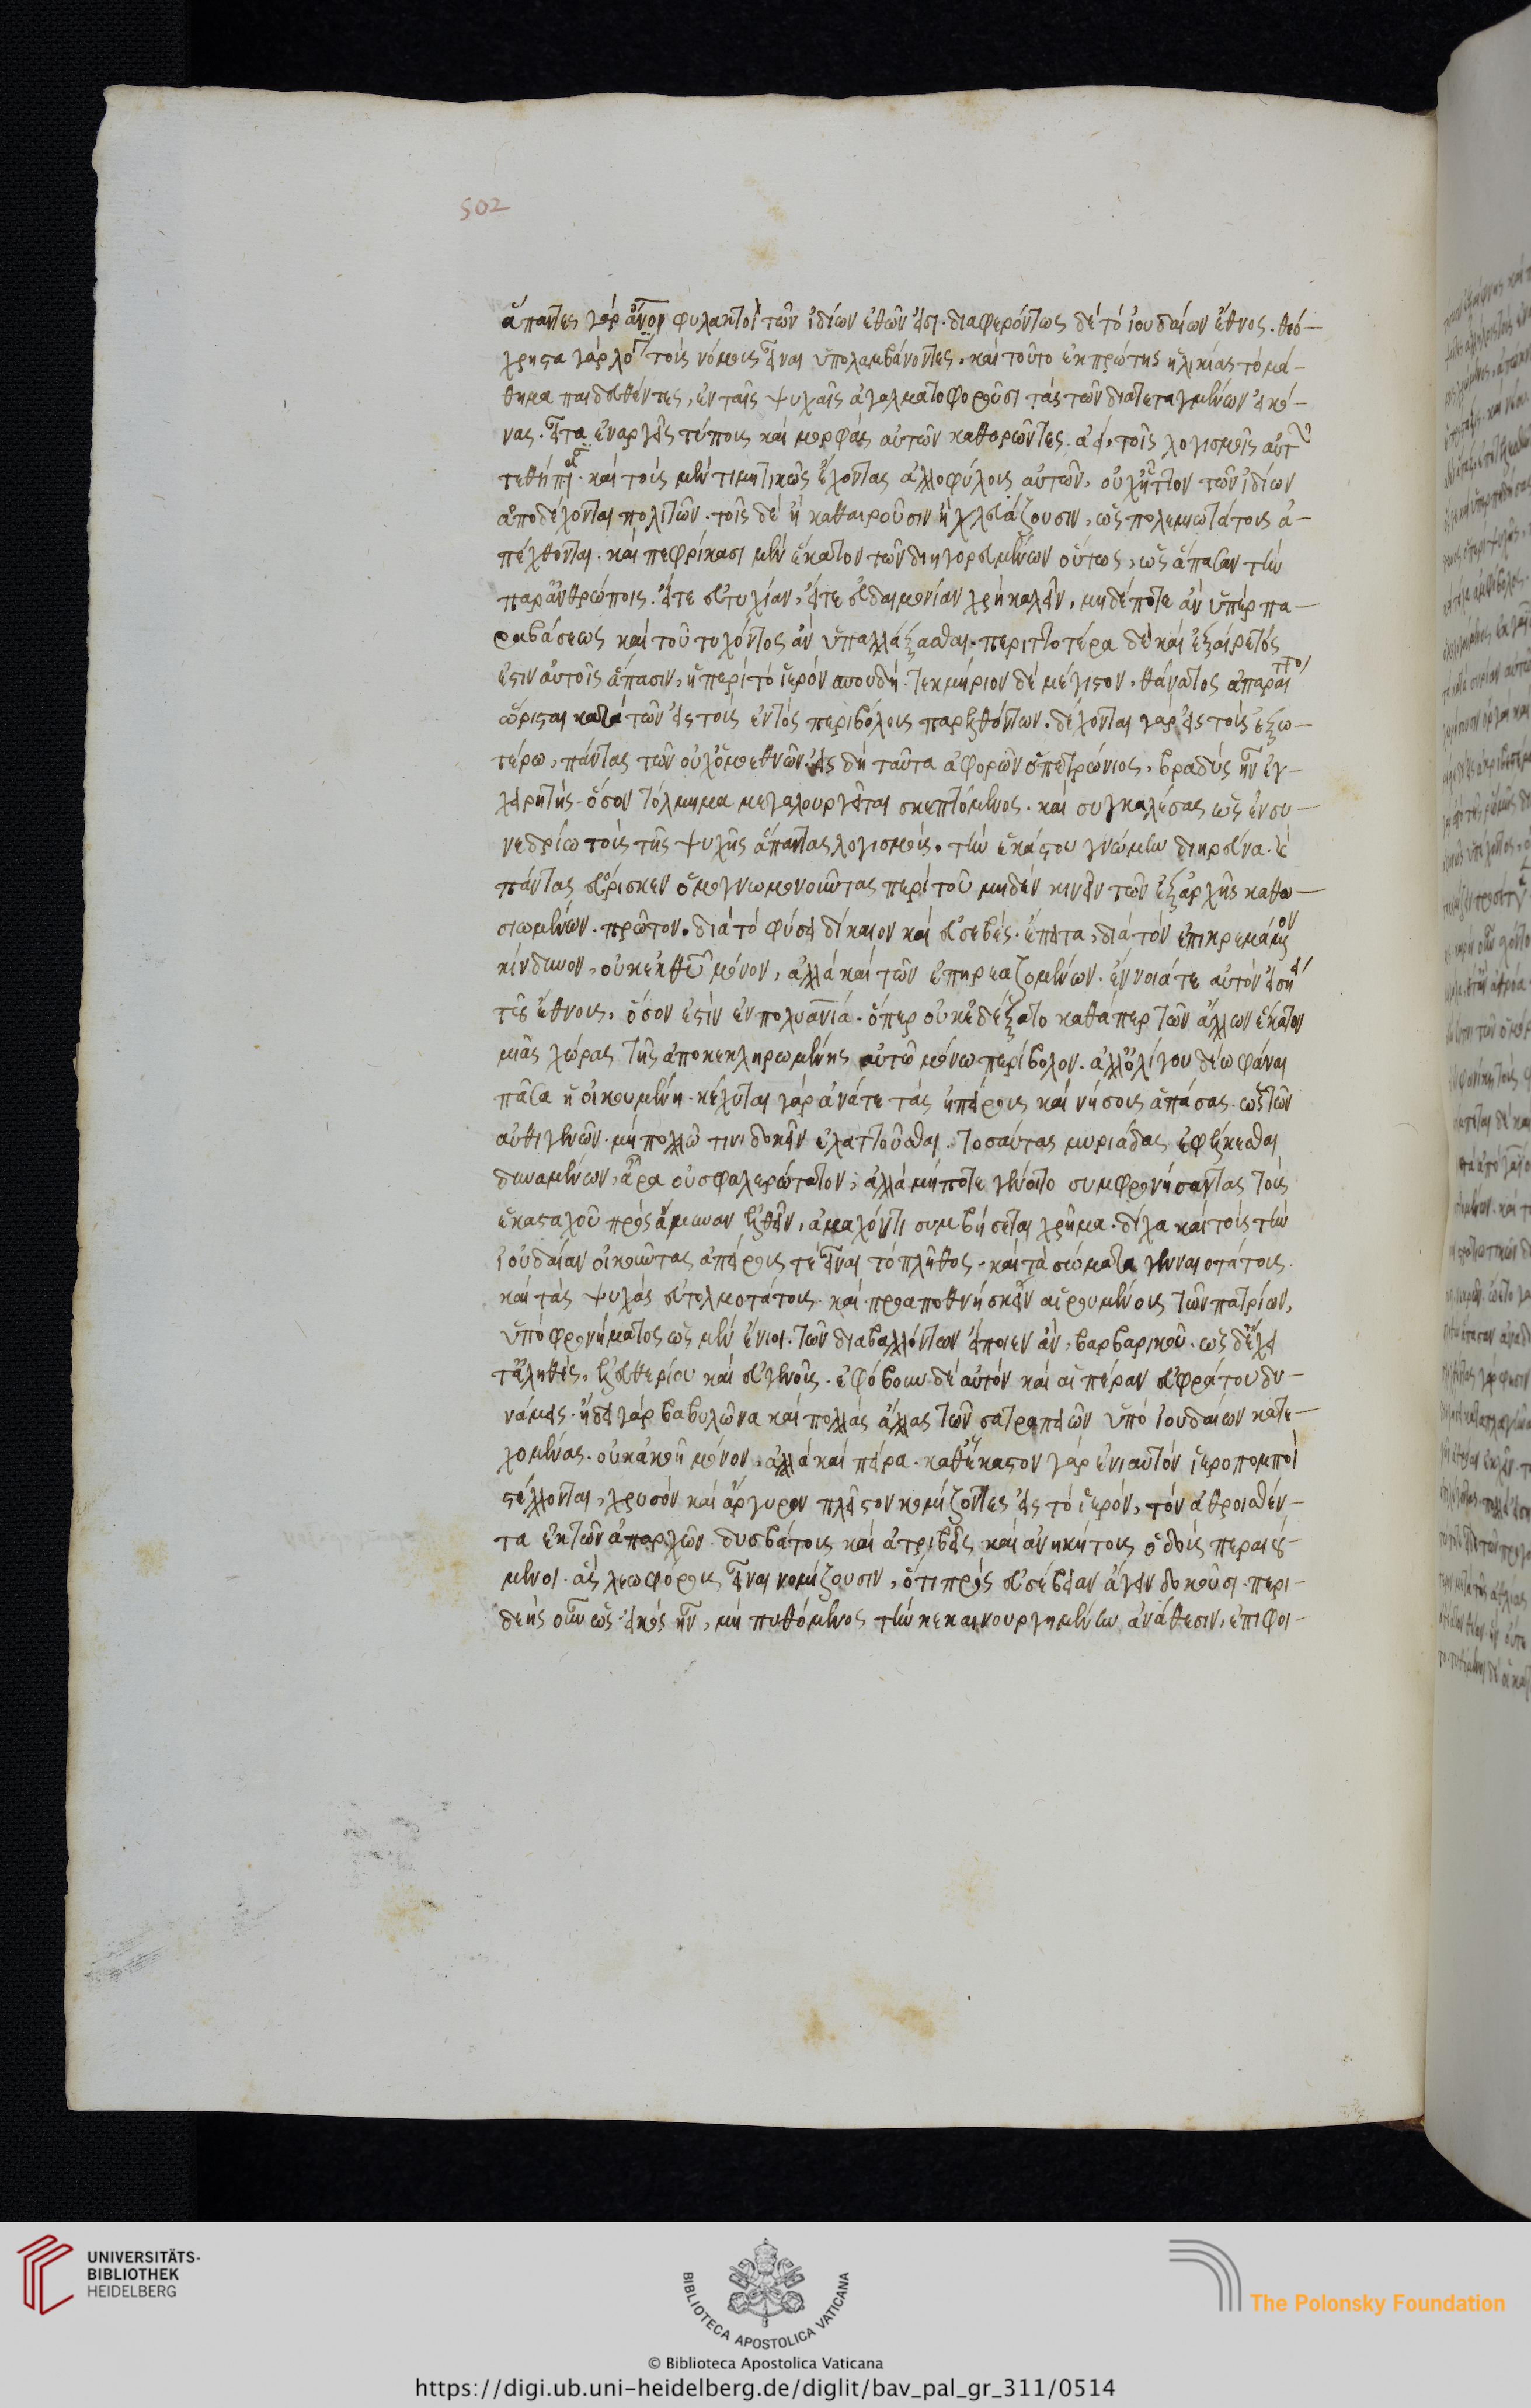 502
ἅπαντες γὰρ ἄνοι φυλακτικοὶ τῶν ἰδίων ἐθῶν εἰσι. διαφερόντως δὲ τὸ ἰουδαίων ἔθνος. θεό-
χρηστα γὰρ λόγια τοὺς νόμους εἶναι ὑπολαμβάνοντες, καὶ τοῦτο ἐκ πρώτης ἡλικίας τὸ μά-
θημα παιδευθέντες, ἐν ταῖς ψυχαῖς ἀγαλματοφοροῦσι τὰς τῶν διατεταγμένων εἰκό-
νας. εἶτα ἐναργεῖς τύπους καὶ μορφὰς αὐτῶν καθορῶντες. ἀεὶ, τοῖς λογισμοῖς αὐτῶν
τεθήπασι. καὶ τοὺς μὲν τιμητικῶς ἔχοντας ἀλλοφύλους αὐτῶν, οὐχ ἧττον τῶν ἰδίων
ἀποδέχονται πολιτῶν. τοῖς δὲ ἢ καθαιροῦσιν ἢ χλευάζουσιν, ὡς πολεμιωτάτοις ἀ-
πέχθονται. καὶ πεφρίκασι μὲν ἕκαστον τῶν διηγορευμένων οὕτως, ὡς ἅπασαν τὴν
παρ' ἀνθρώποις. εἴτε εὐτυχίαν, εἴτε εὐδαιμονίαν χρὴ καλεῖν, μηδέποτε ἂν ὑπὲρ πα-
ραβάσεως καὶ τοῦ τυχόντος ἂν ὑπαλλάξασθαι. περιττοτέρα δὲ καὶ ἐξαίρετός
ἐστιν αὐτοῖς ἅπασιν, ἡ περὶ τὸ ἱερὸν σπουδή. τεκμήριον δὲ μέγιστον, θάνατος ἀπαραίτητος
ὥρισται κατὰ τῶν εἰς τοὺς ἐντὸς περιβόλους παρελθόντων. δέχονται γὰρ εἰς τοὺς ἐξω-
τέρω, πάντας τῶν οὐχ ὁμοεθνῶν. εἰς δὴ ταῦτα ἀφορῶν ὁ πετρώνιος, βραδὺς ἦν ἐγ-
χειρητής. ὅσον τόλμημα μεγαλουργεῖται σκεπτόμενος. καὶ συγκαλέσας ὡς ἐν συ-
νεδρίω τοὺς τῆς ψυχῆς ἅπαντας λογισμοὺς, τὴν ἑκάστου γνώμην διηρεύνα. καὶ
πάντας εὕρισκεν ὁμογνωμονοῦντας περὶ τοῦ μηδὲν κινεῖν τῶν ἐξ ἀρχῆς καθω-
σιωμένων. πρῶτον, διὰ τὸ φύσει δίκαιον καὶ εὐσεβές. ἔπειτα, διὰ τὸν ἐπικρεμάμενον
κίνδυνον, οὐκ ἐκ θεοῦ μόνον, ἀλλὰ καὶ τῶν ἐπηρεαζομένων. ἔννοιά τε αὐτὸν εἰσήει
τοῦ ἔθνους, ὅσον ἐστὶν ἐν πολυανία. ὅπερ οὐκ ἐδέξατο καθάπερ τῶν ἄλλων ἕκαστον
μιᾶς χώρας τῆς ἀποκεκληρωμένης αὐτῶ μόνω περίβολον. ἀλλ' ὀλίγου δέω φάναι
πᾶσα ἡ οἰκουμένη. κέχυται γὰρ ἀνά τε τὰς ἠπείρους καὶ νήσους ἁπάσας. ὡς τῶν
αὐθιγενῶν. μὴ πολλῶ τινι δοκεῖν ἐλαττοῦσθαι. τοσαύτας μυριάδας ἐφέλκεσθαι
δυναμένων, ἆρα οὐ σφαλερώτατον; ἀλλὰ μήποτε γένοιτο συμφρονήσαντας τοὺς
ἑκασταχοῦ πρὸς ἄμυναν ἐλθεῖν, ἄμαχόν τι συμβήσεται χρῆμα. δίχα καὶ τοὺς τὴν
ἰουδαίαν οἰκοῦντας ἀπείρους τε εἶναι τὸ πλῆθος. καὶ τὰ σώματα γενναιοτάτους.
καὶ τὰς ψυχὰς εὐτολμοτάτους. καὶ προαποθνήσκειν αἱρουμένους τῶν πατρίων,
ὑπὸ φρονήματος ὡς μὲν ἔνιοι. τῶν διαβαλλόντων εἴποιεν ἂν, βαρβαρικοῦ. ὡς δὲ ἔχει
τἀληθὲς, ἐλευθερίου καὶ εὐγενοῦς. ἐφόβουν δὲ αὐτὸν καὶ αἱ πέραν εὐφράτου δυ-
νάμεις. ἤδει γὰρ βαβυλῶνα καὶ πολλὰς ἄλλας τῶν σατραπειῶν ὑπὸ ἰουδαίων κατε-
χομένας. οὐκ ἀκοῆ μόνον, ἀλλὰ καὶ πείρα. καθ' ἕκαστον γὰρ ἐνιαυτὸν ἱεροπομποὶ
στέλλονται, χρυσὸν καὶ ἄργυρον πλεῖστον κομίζοντες εἰς τὸ ἱερὸν, τὸν ἀθροισθέν-
τα ἐκ τῶν ἀπαρχῶν. δυσβάτους καὶ ἀτριβεῖς καὶ ἀνηκύτους ὁδοὺς περαιού-
μενοι. ἃς λεωφόρους εἶναι νομίζουσιν, ὅτι πρὸς εὐσέβειαν ἄγειν δοκοῦσι. περι-
δεὴς οὖν ὡς εἰκὸς ἦν, μὴ πυθόμενος τὴν κεκαινουργημένην ἀνάθεσιν, ἐπιφοι-
UNIVERSITÄTS-
BIBLIOTHEK
HEIDELBERG
BIBLIOTECA APOSTOLICA VATICANA
The Polonsky Foundation
© Biblioteca Apostolica Vaticana
https://digi.ub.uni-heidelberg.de/diglit/bav_pal_gr_311/0514